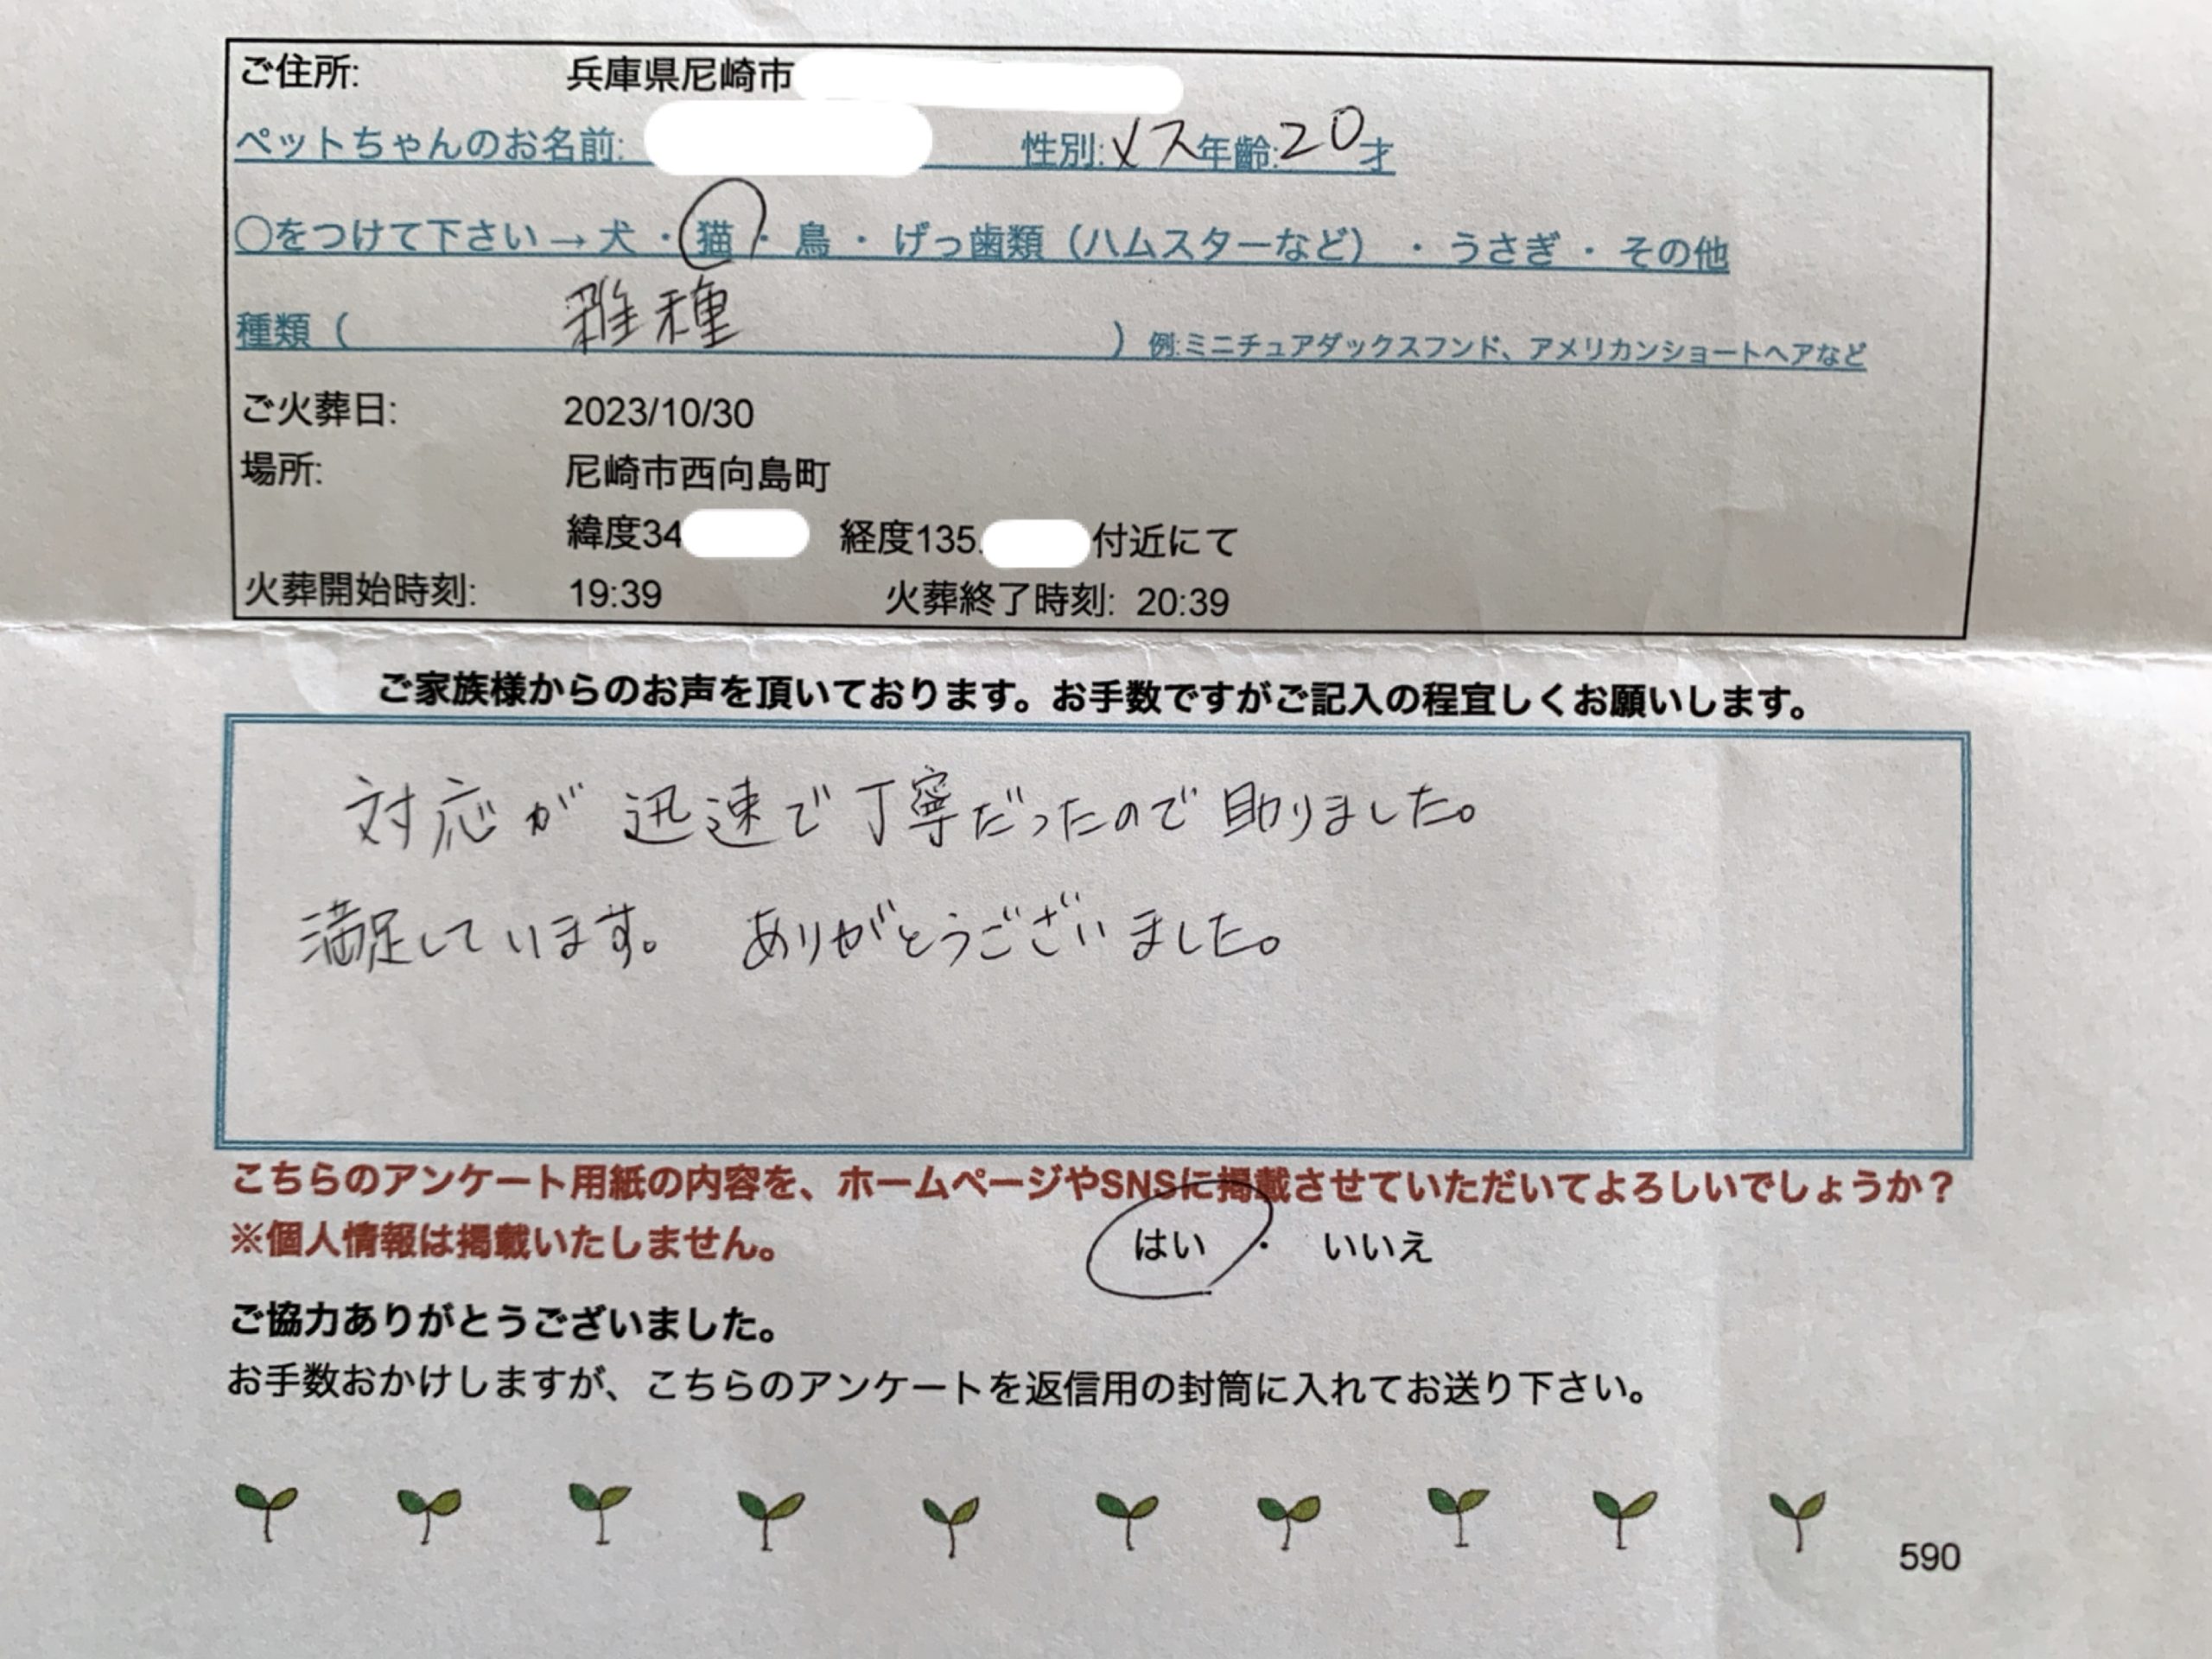 ご住所: 兵庫県尼崎市
ペットちゃんのお名前: 性別:メス年齢:20才
○をつけて下さい→犬・猫・鳥・げっ歯類（ハムスターなど）・うさぎ・その他
種類（ 雑種 ）例:ミニチュアダックスフンド、アメリカンショートヘアなど
ご火葬日: 2023/10/30
場所: 尼崎市西向島町
緯度34 経度135. 付近にて
火葬開始時刻: 19:39 火葬終了時刻: 20:39
ご家族様からのお声を頂いております。お手数ですがご記入の程宜しくお願いします。
対応が迅速で丁寧だったので助りました。
満足しています。 ありがとうございました。
こちらのアンケート用紙の内容を、ホームページやSNSに掲載させていただいてよろしいでしょうか？
※個人情報は掲載いたしません。 はい ・ いいえ
ご協力ありがとうございました。
お手数おかけしますが、こちらのアンケートを返信用の封筒に入れてお送り下さい。
590